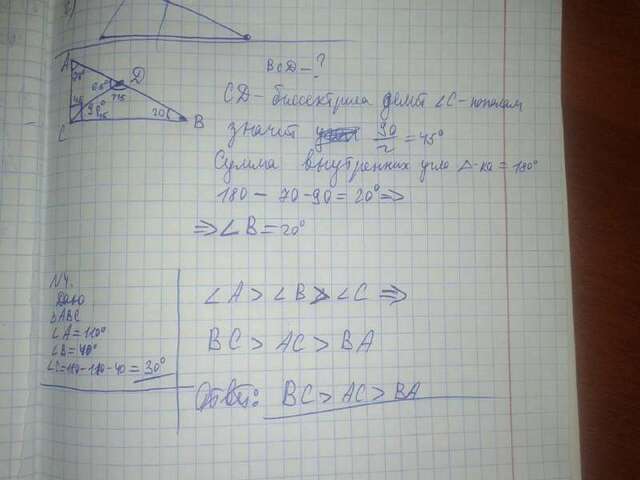 A
D
C
B
70°
65°
115
90°
45
20
BCD - ?
CD - биссектриса делит ∠C - пополам
значит 90/2 = 45°
Сумма внутренних угло △-ка = 180°
180 - 70 - 90 = 20° ⇒
⇒ ∠B = 20°
N4.
Дано
△ABC
∠A = 110°
∠B = 40°
∠C = 180 - 110 - 40 = 30°
∠A > ∠B > ∠C ⇒
BC > AC > BA
Ответ: BC > AC > BA